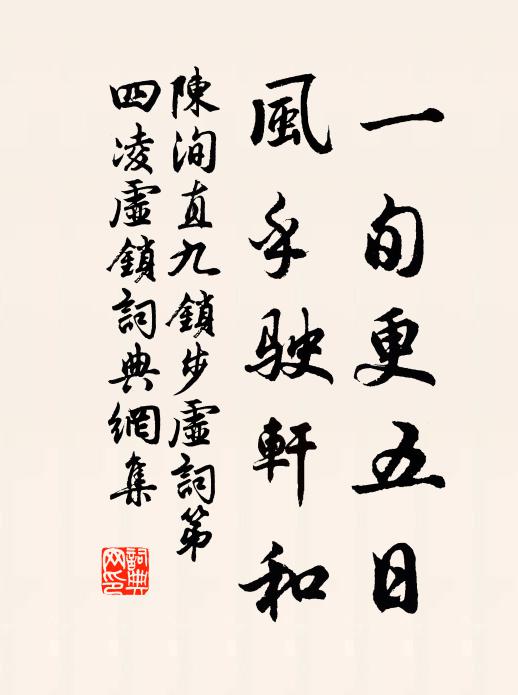 一旬更五日
風乎駛軒和
陳洵直九鎖步虛詞第
四凌虛鎖詞典網集
詞典网印